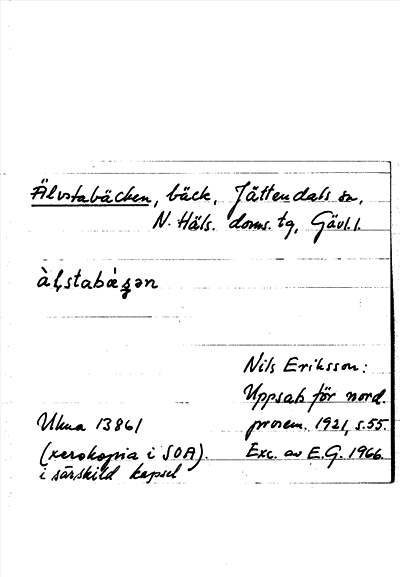 Älvstabäcken, bäck, Jättendals sn,
N. Häls. doms. tg, Gävl. l.
àl̥stabæ̀ʓən
Nils Eriksson:
Uppsats för nord.
prosem. 1921, s. 55.
Exc. av E.G. 1966.
Ulma 13861
(xerokopia i SOA).
i särskild kapsel